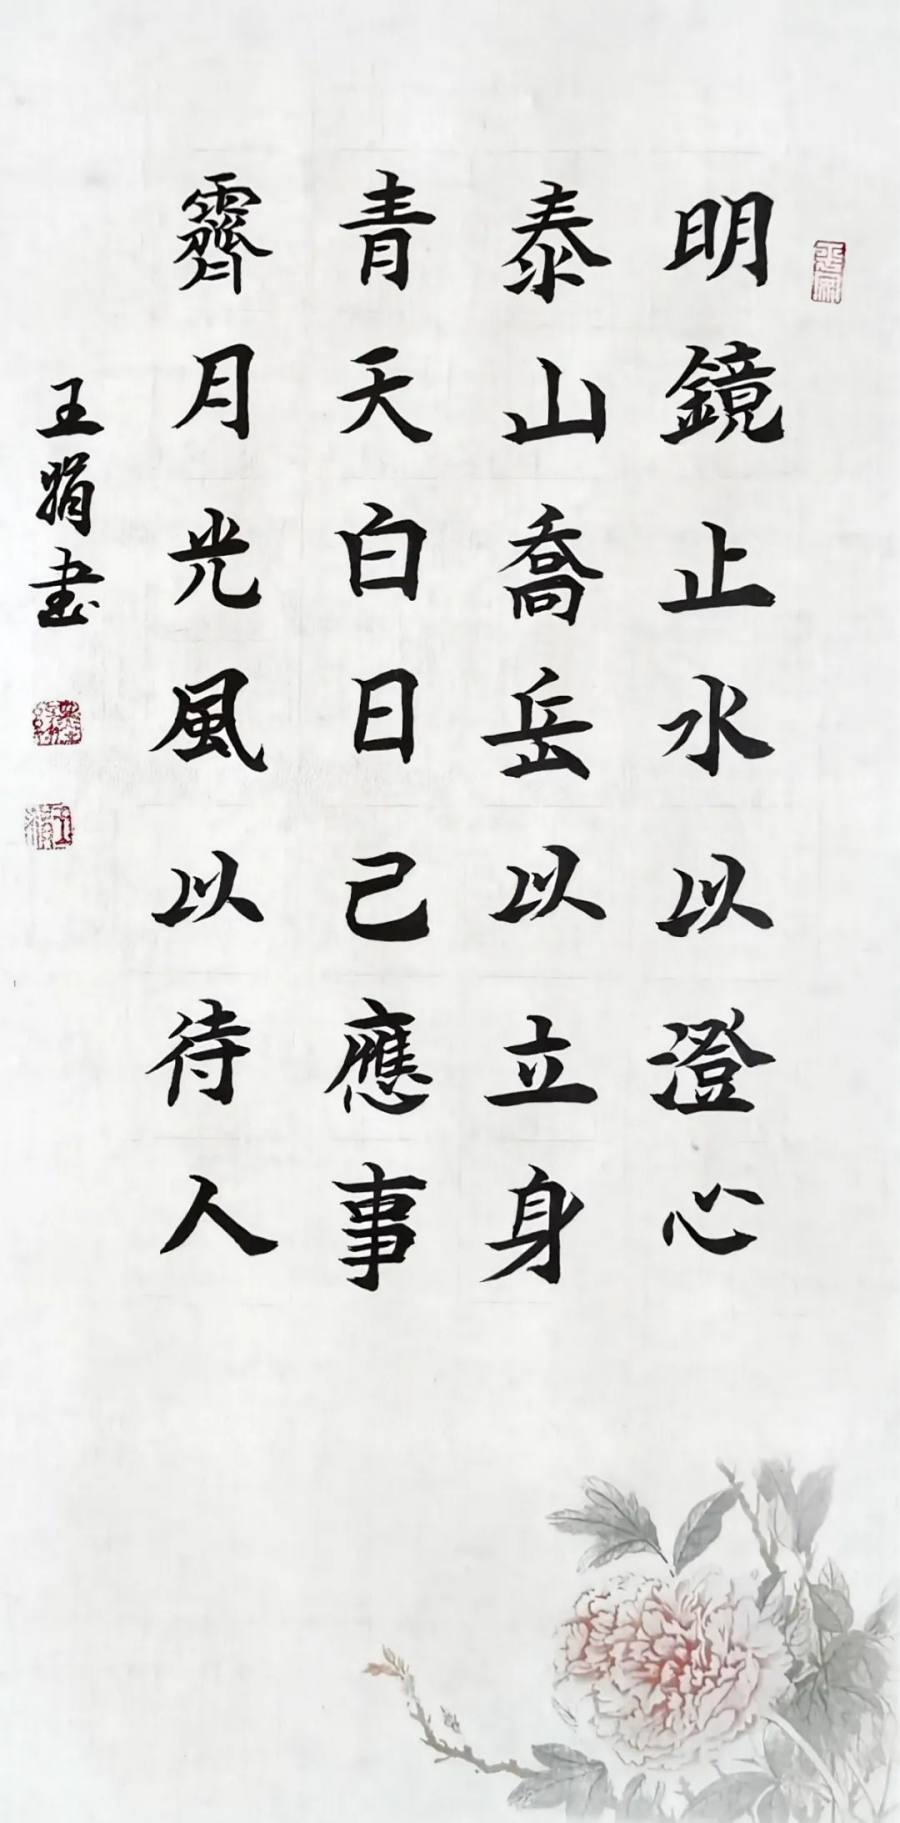 明鏡止水以澄心
泰山喬岳以立身
青天白日己應事
霽月光風以待人
王娟書